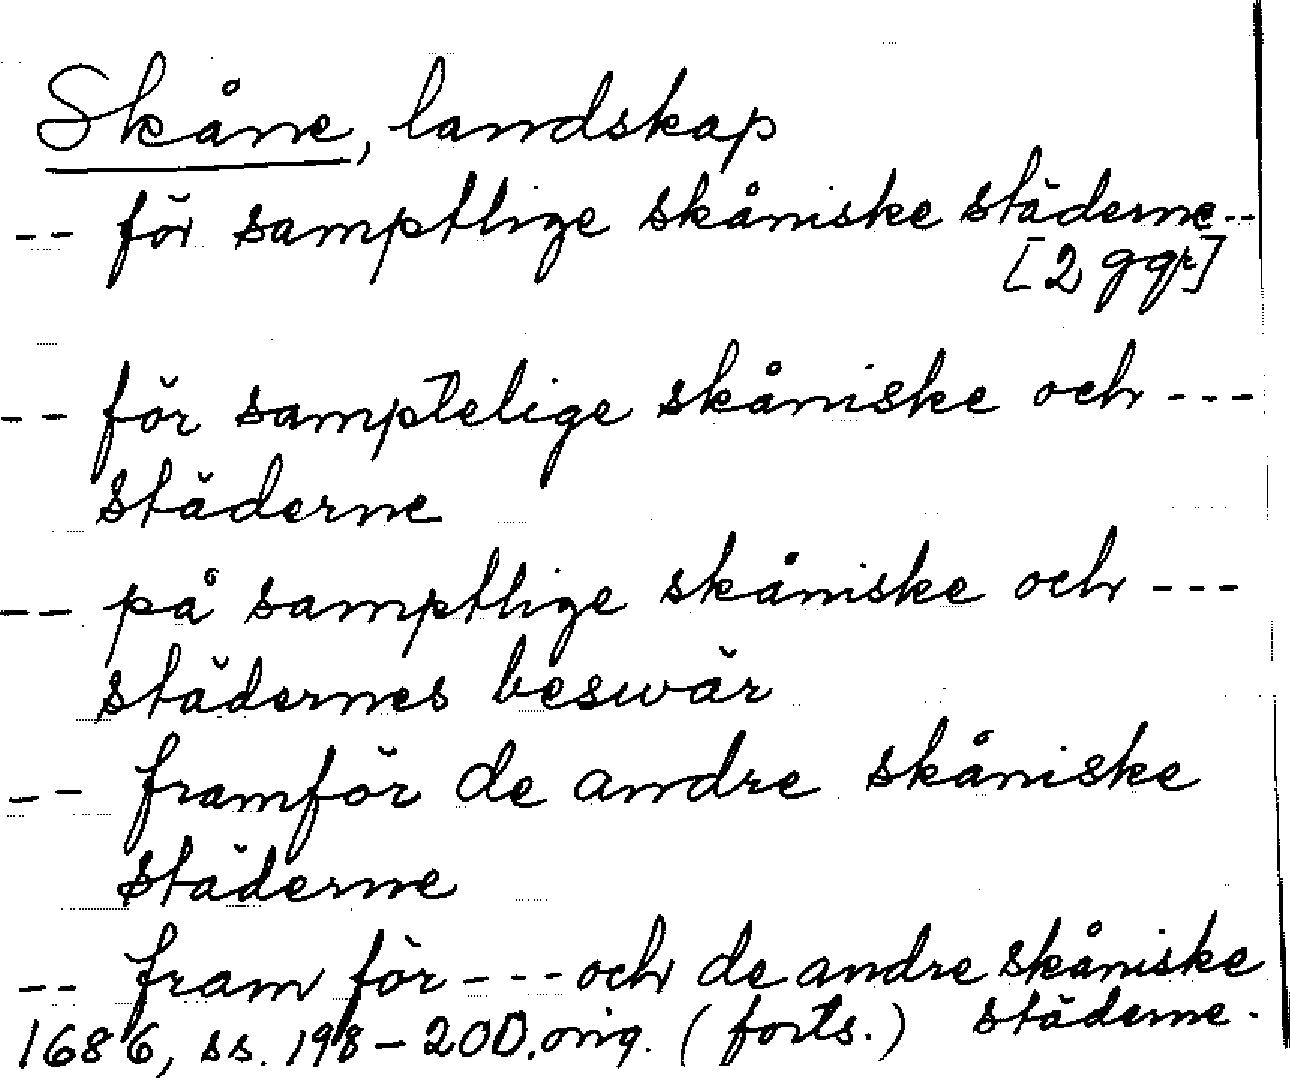 Skåne, landskap
-- för samptlige skåniske städerne--
[2 ggr]
-- för samptelige skåniske och ---
städerne
-- på samptlige skåniske och ---
städernes beswär
-- framför de andre skåniske
städerne
-- fram för --- och de andre skåniske
städerne.
1686, ss. 198-200. orig. (forts.)